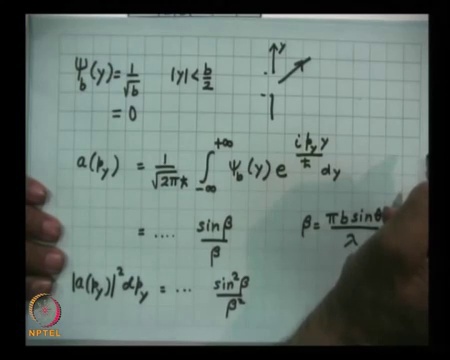 ψ_b(y) = 1/√b |y| < b/2
= 0
y
a(p_y) = 1/√(2πħ) ∫_{-∞}^{+∞} ψ_b(y) e^{i p_y y/ħ} dy
= .... sinβ/β β = πb sinθ/λ
|a(p_y)|² dp_y = ... sin²β/β²
NPTEL